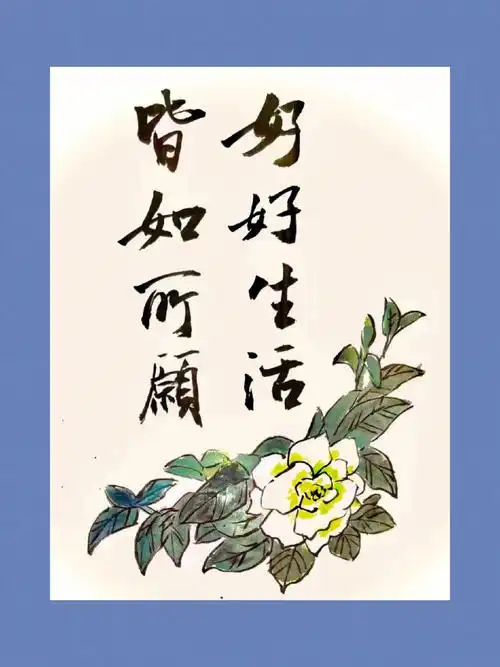 好好生活
皆如所願